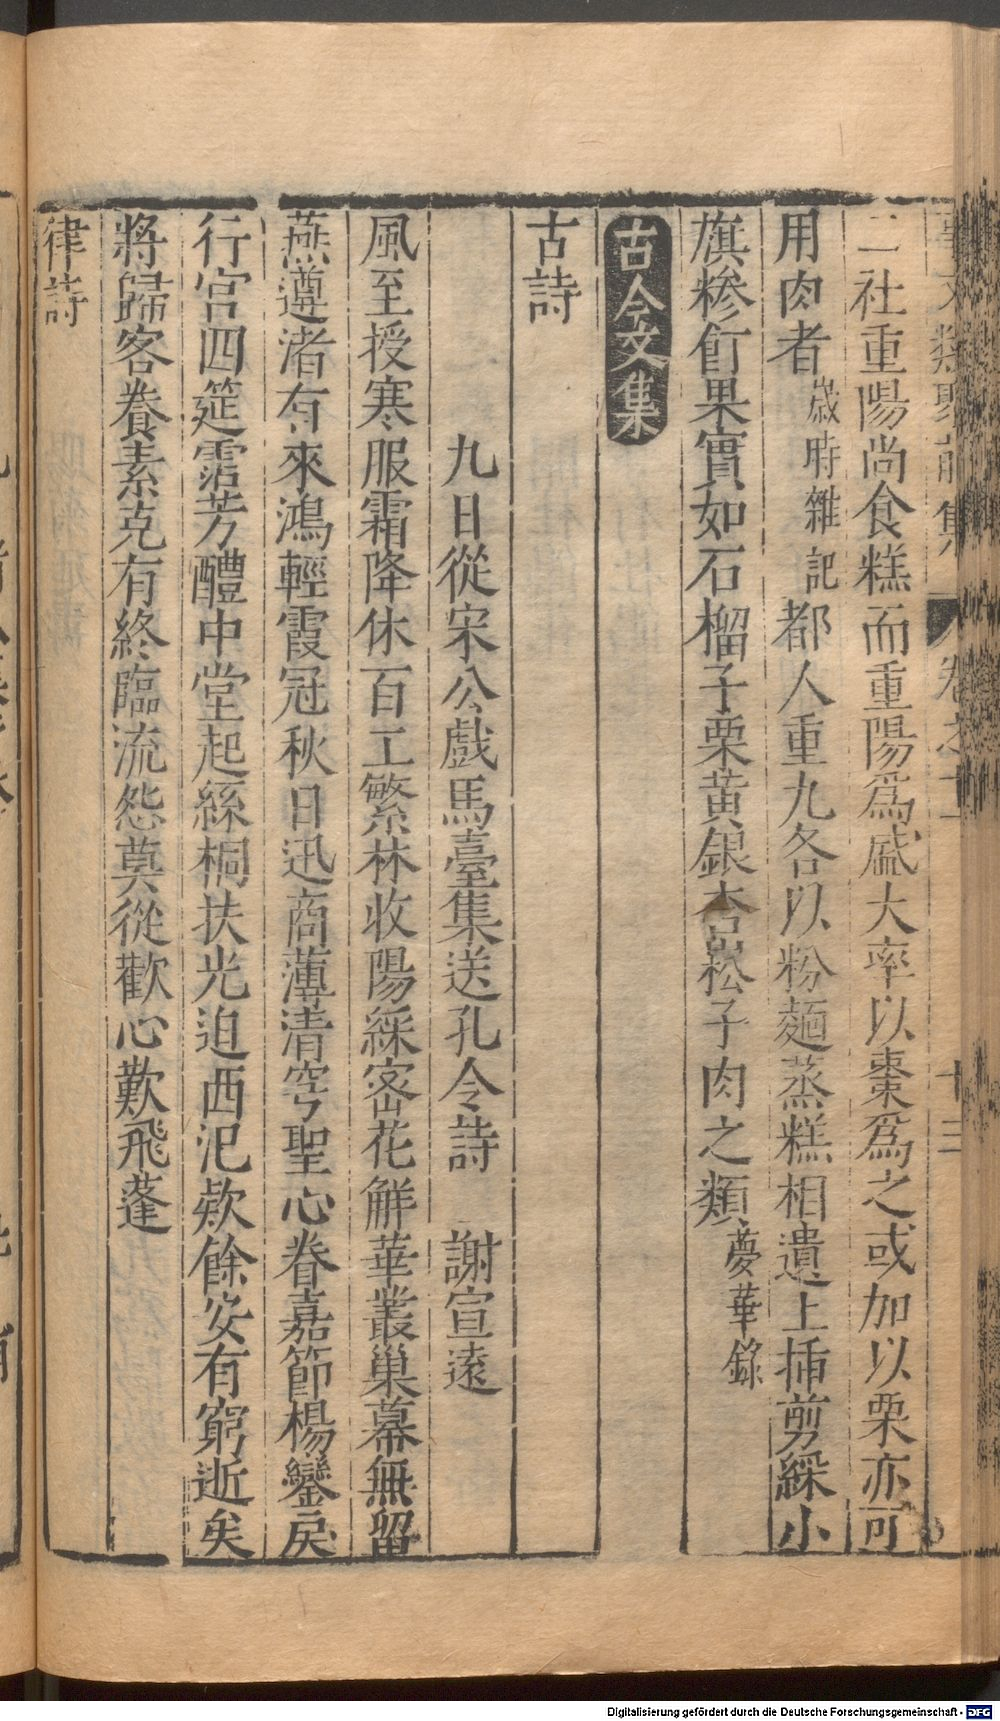 二社重陽尚食糕而重陽爲盛大率以棗爲之或加以栗亦可
用肉者歲時雜記都人重九各以粉麵蒸糕相遺上揷剪綵小
旗糝飣果實如石榴子栗黃銀杏松子肉之類夢華錄
古今文集
古詩
九日從宋公戲馬臺集送孔令詩　謝宣遠
風至授寒服霜降休百工繁林收陽綵密花觧華叢巢幕無留
燕遵渚有來鴻輕霞冠秋日迅商薄清穹聖心眷嘉節楊鑾戾
行宮四筵霑芳醴中堂起絲桐扶光迫西汜歡餘安有窮逝矣
將歸客養素克有終臨流怨莫從歡心歎飛蓬
律詩
Digitalisierung gefördert durch die Deutsche Forschungsgemeinschaft - DFG